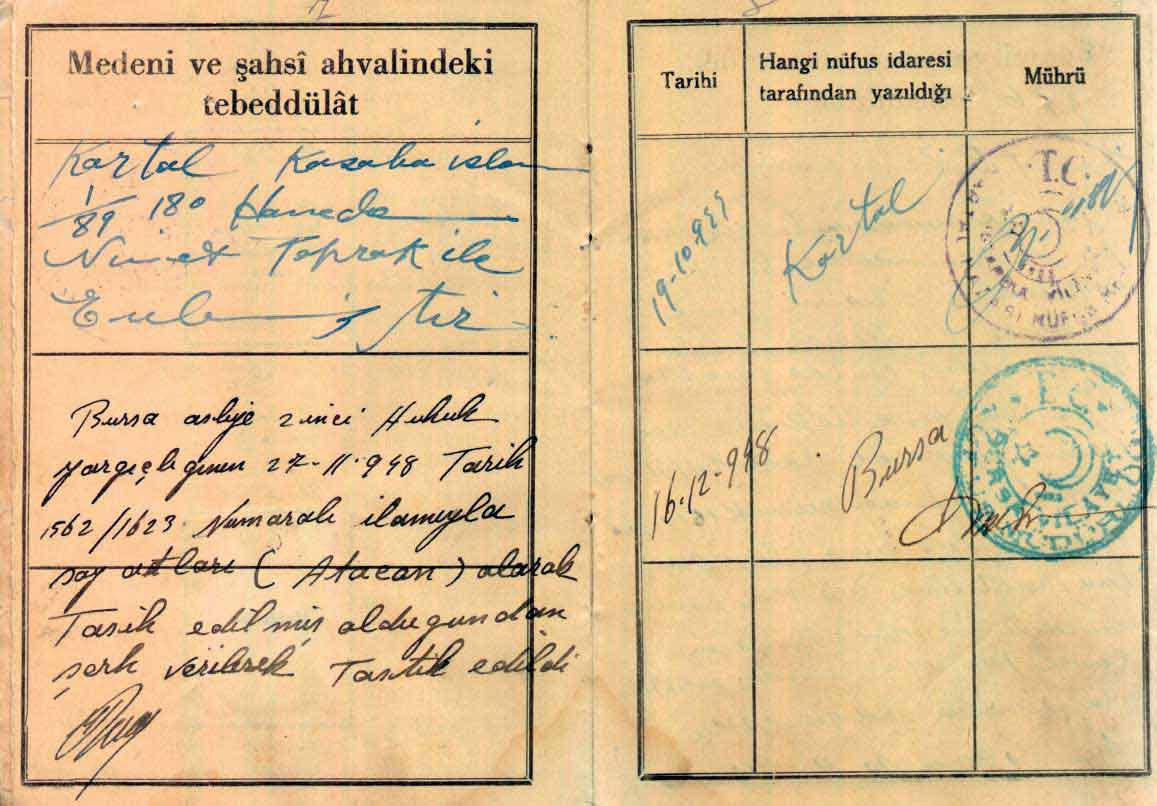 Medeni ve şahsî ahvalindeki
tebeddülât
Kartal Kasaba islam
1/89 180 Hanede
Nimet Toprak ile
Evlenmiştir
Bursa asliye 2 inci Hukuk
yargıçlığının 27-11-948 Tarih
1562/1623 Numaralı ilamıyla
soy adları (Atacan) olarak
Tasih edilmiş olduğundan
şerh verilerek Tastik edildi
Tarihi
Hangi nüfus idaresi
tarafından yazıldığı
Mührü
19-10-944
Kartal
T.C.
16-12-948
Bursa
T.C.
BURSA VİLAYETİ